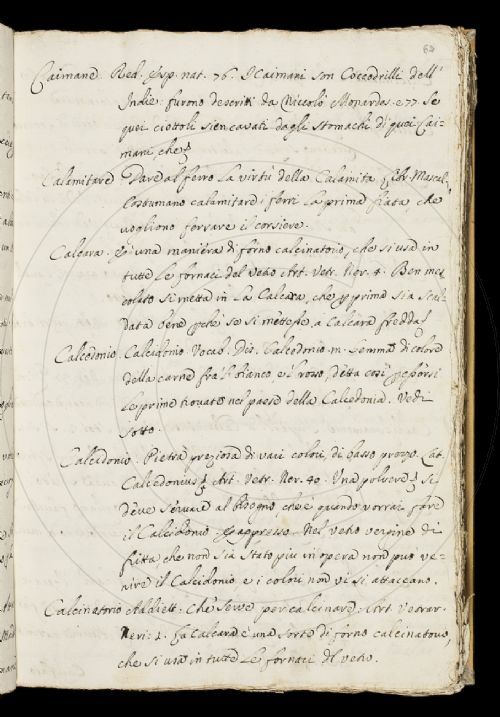 62
Caimane. Red. Esp. nat. 76. I Caimani son Coccodrilli dell'
Indie: furono descritti da Niccolò Monardes. e 77. Se
quei ciottoli sien cavati dagli stomachi di quei Cai=
mani che
Calamitare Dare al ferro la virtù della Calamita Libr. Mascal.
Costumano calamitare i ferri la prima fiata che
vogliono ferrare il corsiere.
Calcara. è una maniera di forno calcinatorio, che si usa in
tutte le fornaci del vetro Art. Vetr. Ner. 4. Ben mes
colato si metta in la Calcara, che prima sia scal
data bene perché se si mettesse a Calcara fredda
Calcedonio. Calcidonio Vocab. Dis. Calcedonio m. Gemma di colore
della carne fra 'l bianco, e 'l rosso, detta così per
le prime trovate nel paese della Calcedonia. Vedi
sotto.
Calcidonio. Pietra preziosa di vari colori, di basso prezzo. Lat.
Calcedonius Art. Vetr. Ner. 40. Una polvere si
deve servare al bisogno, che è quando vorrai fare
il Calcidonio appresso. Nel vetro vergine di
fritta che non sia stato più in opera non può ve=
nire il Calcidonio e i colori non vi si attaccano.
Calcinatorio Addiett. Che serve per calcinare Art. Vetrar.
Neri: 2. La Calcara è una sorte di forno calcinatorio,
che si usa in tutte le fornaci di vetro.